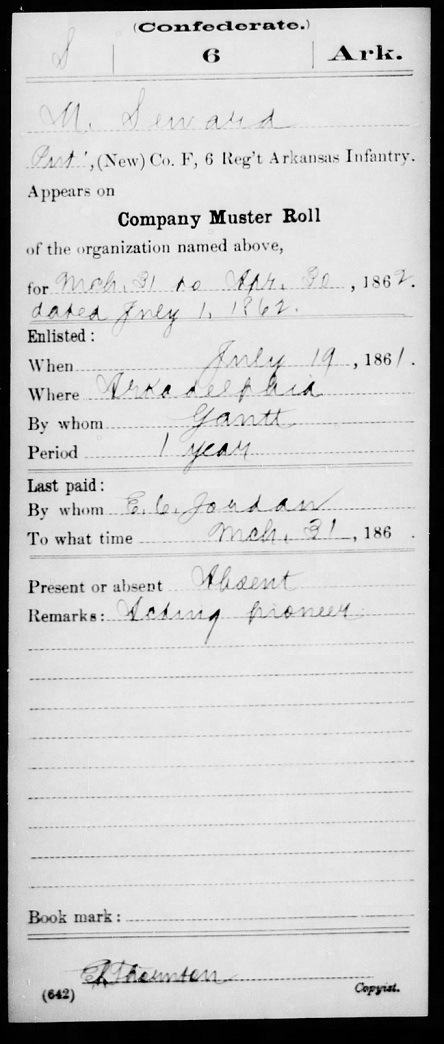 (Confederate.)
S | 6 | Ark.
M. Seward
Pvt, (New) Co. F, 6 Reg't Arkansas Infantry.
Appears on
Company Muster Roll
of the organization named above,
for Mch. 31 to Apr. 30, 1862.
dated July 1, 1862.
Enlisted:
When July 19, 1861.
Where Arkadelphia
By whom Gantt
Period 1 year
Last paid:
By whom E. C. Jordan
To what time Mch. 31, 186 .
Present or absent Absent
Remarks: Acting pioneer
Book mark:
Thornton
(642) Copyist.